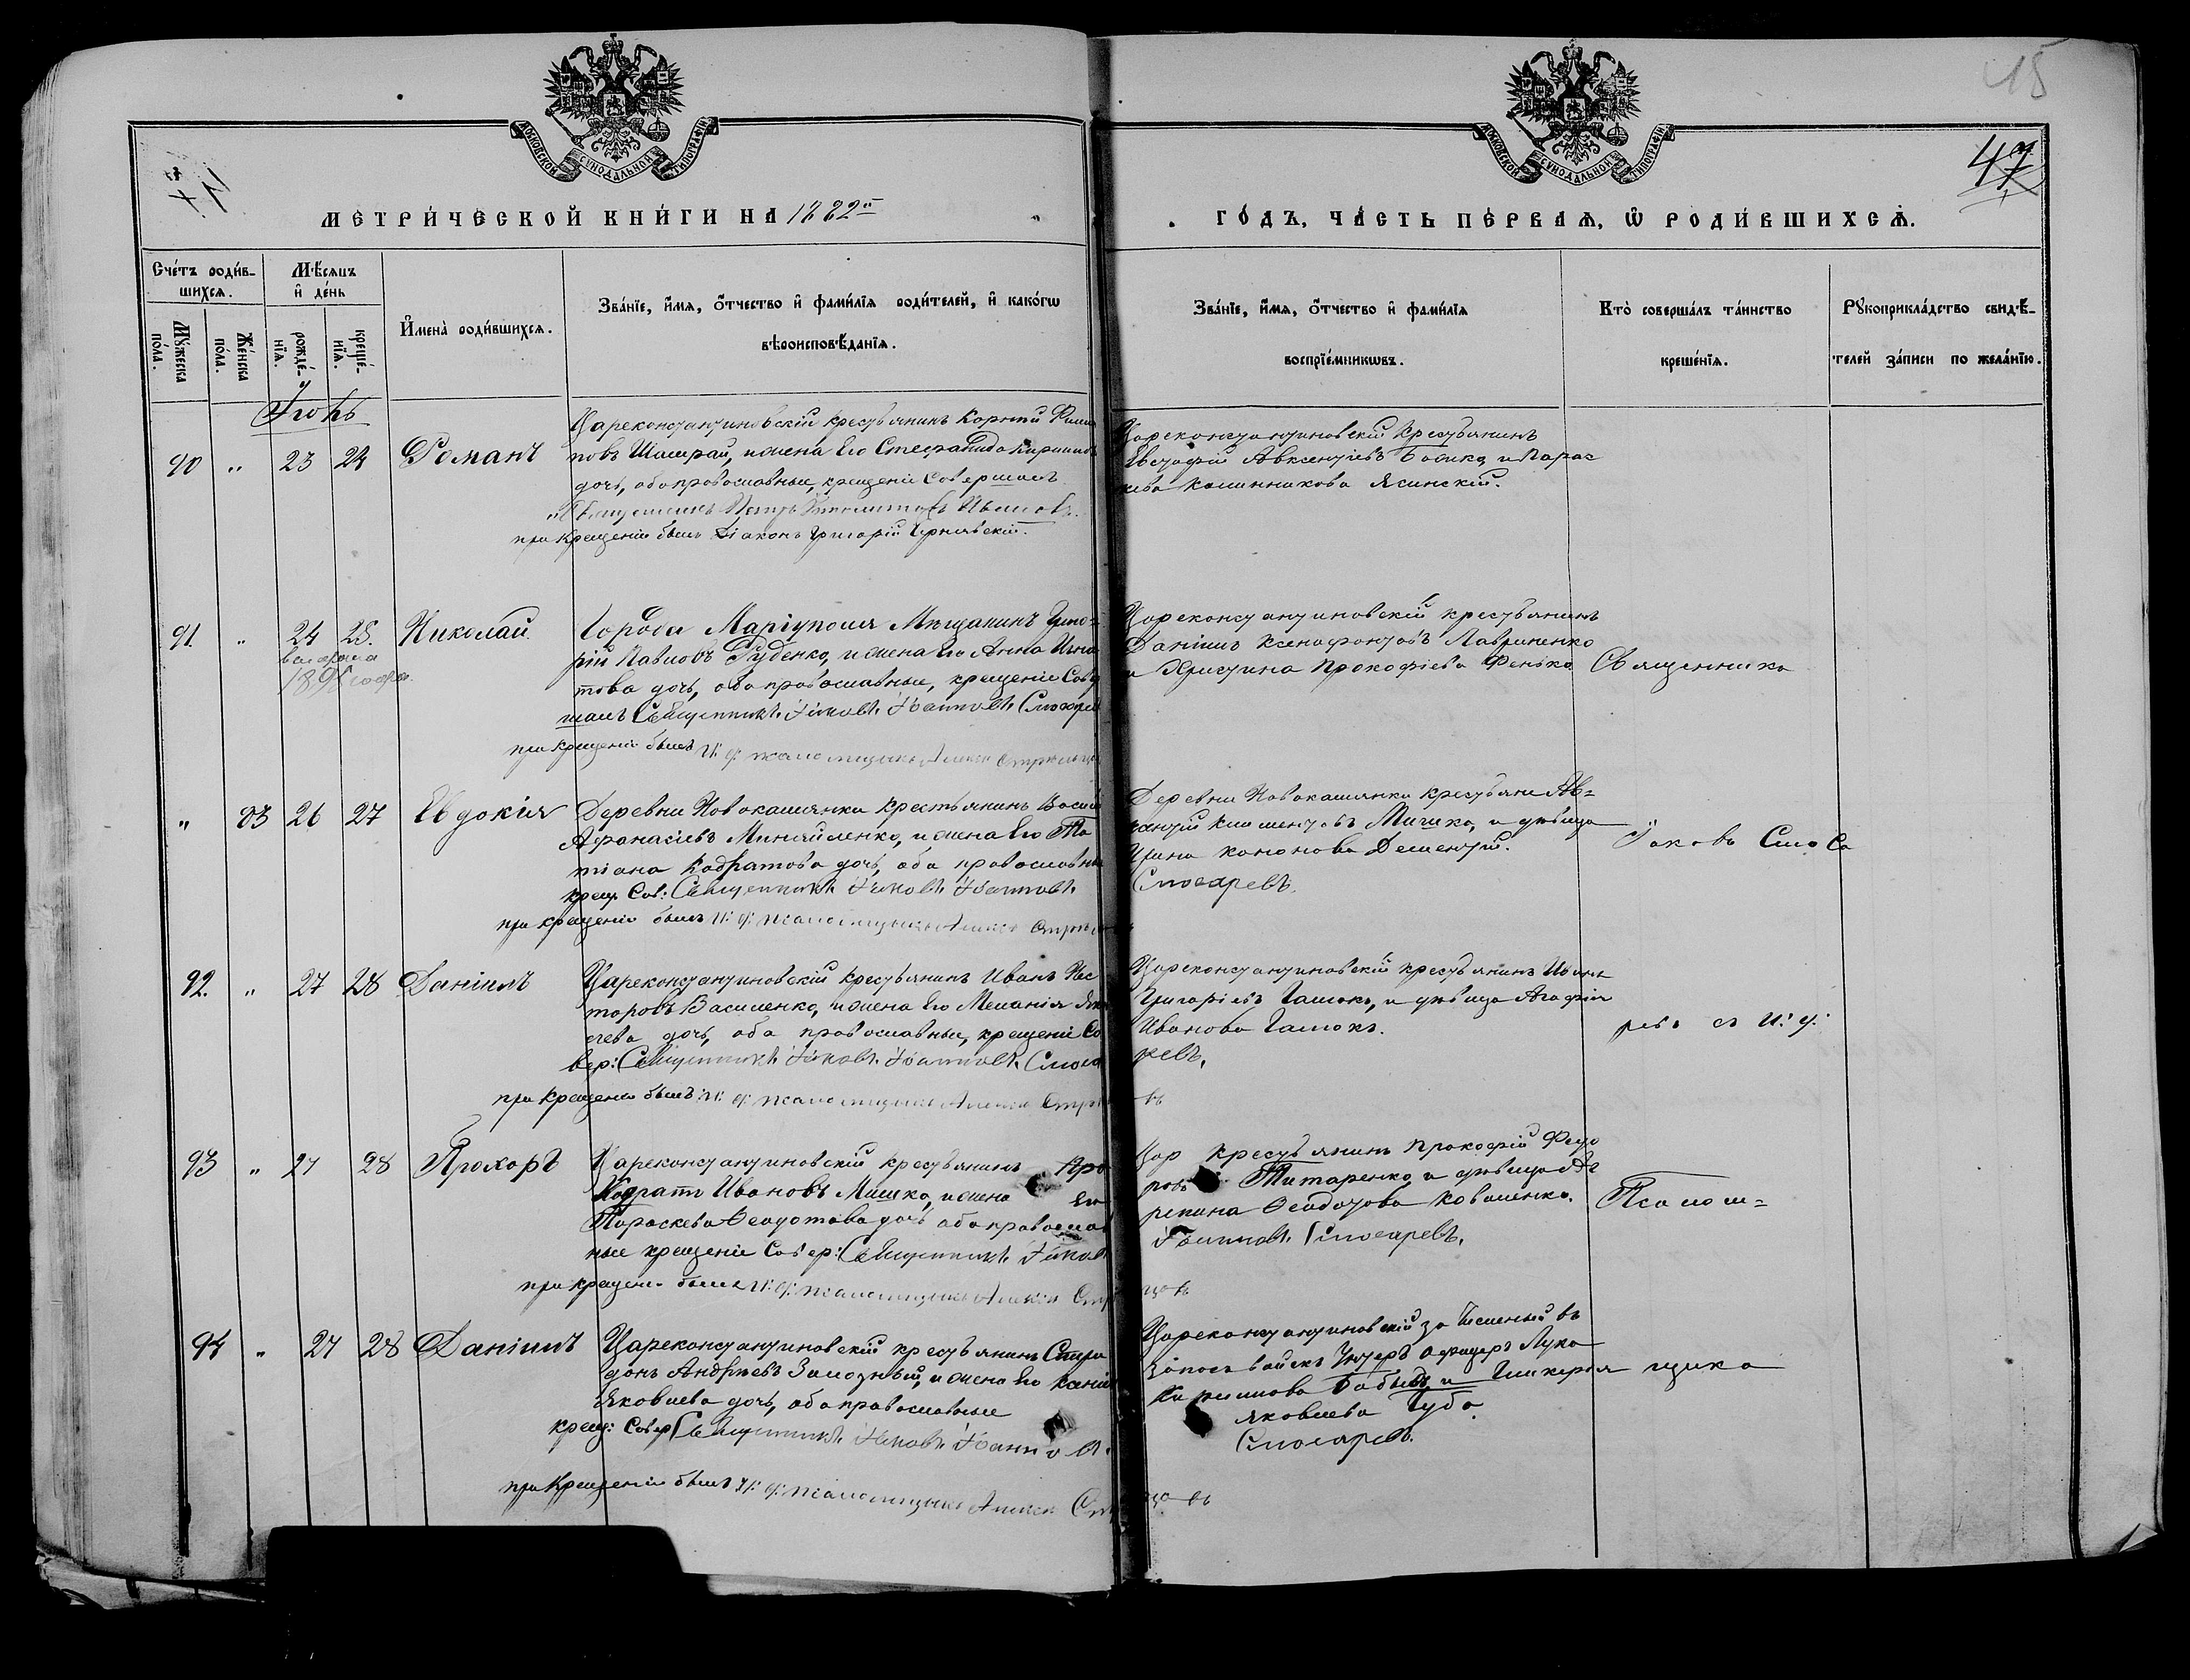 45
47
МОСКОВСКОЙ СѴНОДАЛЬНОЙ ТИПОГРАФІИ
МОСКОВСКОЙ СѴНОДАЛЬНОЙ ТИПОГРАФІИ
МЕТРИ́ЧЕСКОЙ КНИ́ГИ НА 1882й
ГО́ДЪ, ЧА́СТЬ ПЕ́РВАѦ, Ѡ РОДИ́ВШИХСѦ.
Сче́тъ роди́в-
шихсѧ.
Мꙋ́жеска по́ла.
Же́нска по́ла.
Мѣ́сѧцъ
и҆ де́нь
рожде́-
нїѧ.
креще́-
нїѧ.
И҆мена̀ роди́вшихсѧ.
Зва́нїе, и҆́мѧ, ѻ҆́тчество и҆ фами́лїѧ роди́телей, и҆ како́гѡ
вѣроисповѣ́данїѧ.
Зва́нїе, и҆́мѧ, ѻ҆́тчество и҆ фами́лїѧ
воспрїе́мникѡвъ.
Кто̀ соверша́лъ та́инство
креще́нїѧ.
Рꙋкоприкла́дство свидѣ́-
телей за́писи по жела́нїю.
Іюнь
90 " 23 24 Романъ
Цареконстантиновскій крестьянинъ Корній Филип
повъ Шаграй, и жена его Стефанида Кирилова
дочь, оба православные, крещеніе совершалъ
Священникъ Петръ
при крещеніи былъ Діаконъ Григорій Чернявскій.
Цареконстантиновскій крестьянинъ
Евстафій Авксентіевъ и Парас
кева Калинникова
91. " 24 25. Николай
1898 года
Города Маріуполя Мѣщанинъ Григо-
рій Павловъ Руденко, и жена его Анна Игна
това дочь, оба православные, крещеніе совер
шалъ Священникъ Іаковъ Іоанновъ Слюсарев
при крещеніи былъ И. д. псаломщика Алексѣй Стрѣльцо
Цареконстантиновскій крестьянинъ
Даніилъ Ксенофонтовъ Лавриненко
и Христина Прокофіева Фенько
Священника
" 83 26 27 Евдокія
Деревни Новокамянки крестьянинъ Васил
Афанасіевъ Минайленко, и жена его Та
тіана Кодратова дочь, оба православны
крещ. сов: Священникъ Іаковъ Іоанновъ
при крещеніи былъ и. д. псаломщика Алексѣй Стрѣл
Деревни Новокамянки крестьяне Ав-
Климентовъ Мишко, и дѣвица
Ирина Кононова Дементій.
Слюсаревъ.
Іаковъ Слюса
92. " 27 28 Даніилъ
Цареконстантиновскій крестьянинъ Иванъ Нес
торовъ Василенко, и жена его Меланія Яко
влева дочь, оба православные, крещеніе со
вер: Священникъ Іаковъ Іоанновъ Слюса
при крещеніи былъ и. д. псаломщика Алексѣй Стрѣ
Цареконстантиновскій крестьянинъ Иванъ
Григорьевъ Галюкъ, и дѣвица Агафія
Иванова Галюкъ.
ревъ.
въ
ревъ съ и: д:
93 " 27 28 Прохоръ
Цареконстантиновскій крестьянинъ
Кодратъ Ивановъ Мишко, и жена его
Параскева Ѳеодотова дочь оба православ
ные крещеніе совер: Священникъ Іаковъ
при крещеніи былъ и. д. псаломщика Алексѣй Стрѣ
Цар крестьянинъ Прокофій Федо
ровъ Титаренко, и дѣвица Аг
рипина Ѳеодотова Коваленко.
Іоанновъ Слюсаревъ.
цовъ
Псалом-
94 " 27 28 Даніилъ
Цареконстантиновскій крестьянинъ Спири
донъ Андреевъ Залозный, и жена его Ксенія
Яковлева дочь, оба православные
крещ: совер Священникъ Іаковъ Іоанновъ
при крещеніи былъ и. д. псаломщика Алексѣй Ст
Цареконстантиновскій зачисленный въ
запасъ войскъ унтеръ офицеръ Лука
Кирилловъ и Гликерія
Яковлева Чуба
Слюсаревъ.
цовъ
щика